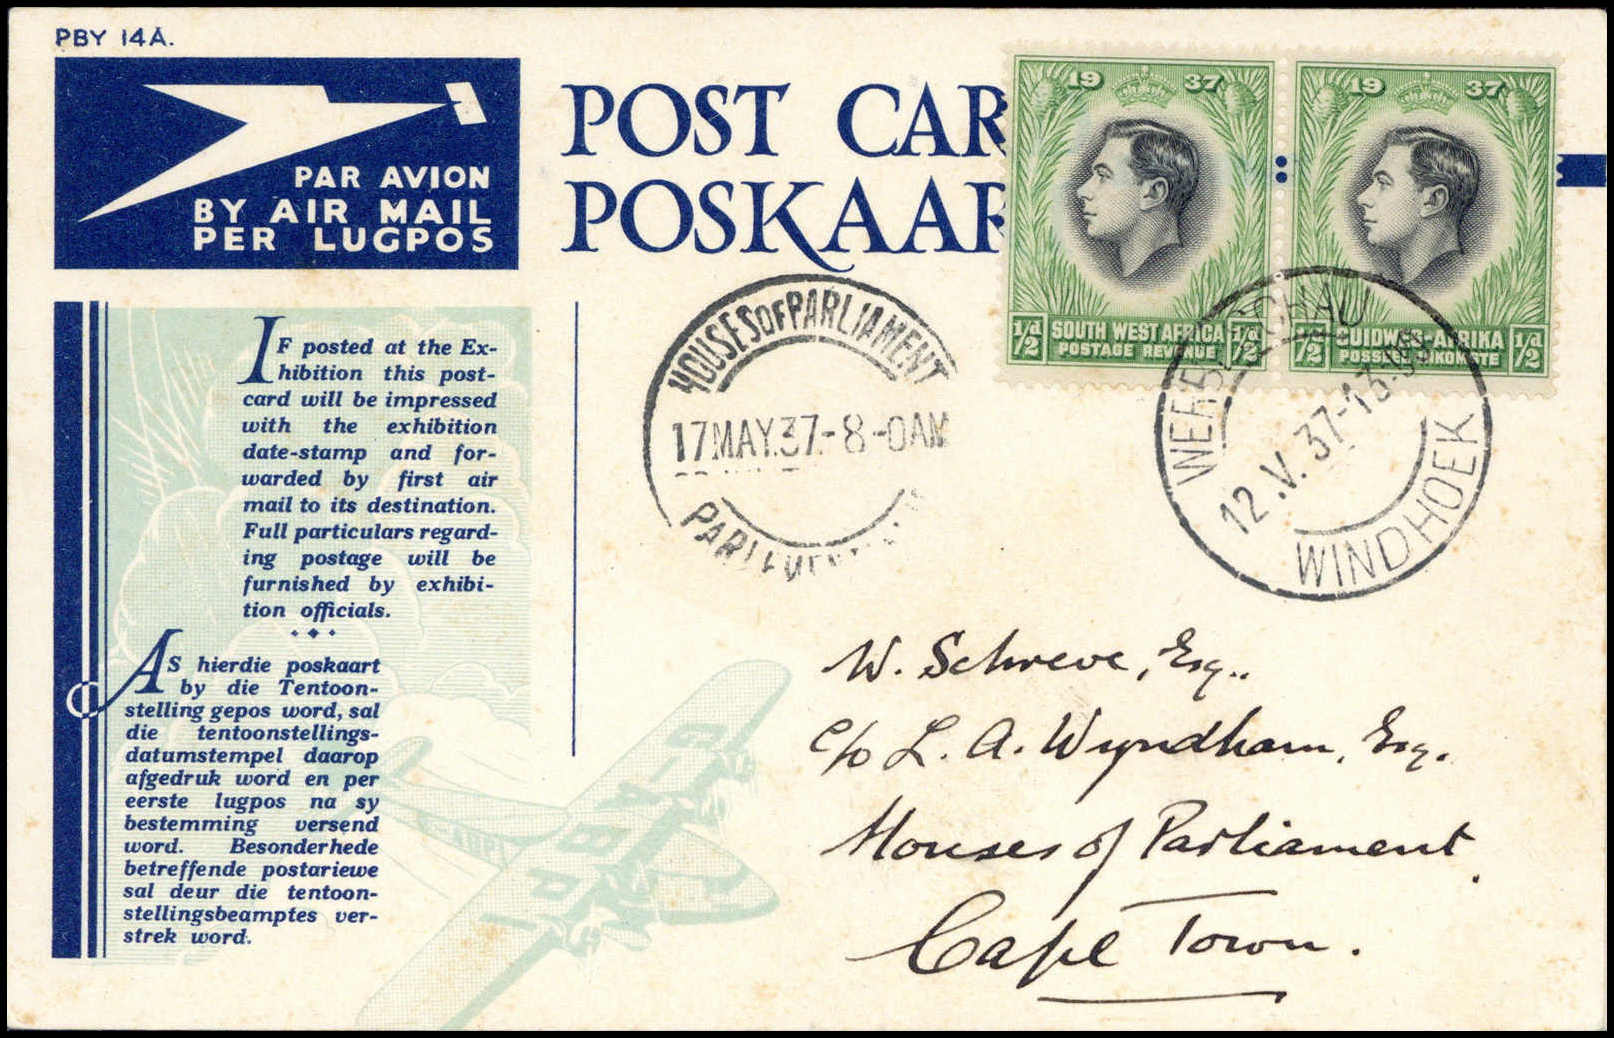 PBY 14A.
PAR AVION
BY AIR MAIL
PER LUGPOS
POST CAR
POSKAAR
19 37
½d SOUTH WEST AFRICA ½d
POSTAGE REVENUE
19 37
½d SUIDWES-AFRIKA ½d
HOUSES OF PARLIAMENT
17 MAY.37-8-0AM
WINDHOEK
12.V.37-13
IF posted at the Ex-
hibition this post-
card will be impressed
with the exhibition
date-stamp and for-
warded by first air
mail to its destination.
Full particulars regard-
ing postage will be
furnished by exhibi-
tion officials.
AS hierdie poskaart
by die Tentoon-
stelling gepos word, sal
die tentoonstellings-
datumstempel daarop
afgedruk word en per
eerste lugpos na sy
bestemming versend
word. Besonderhede
betreffende postariewe
sal deur die tentoon-
stellingsbeamptes ver-
strek word.
W. Schreve, Esq..
c/o L. A. Wyndham, Esq.
Houses of Parliament.
Cape Town.